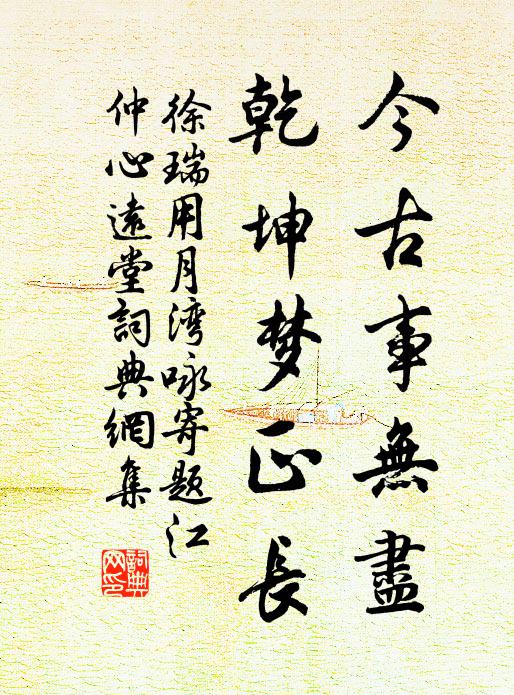 今古事無盡
乾坤梦正長
徐瑞用月湾咏寄题江
仲心遠堂詞典網集
詞典网印